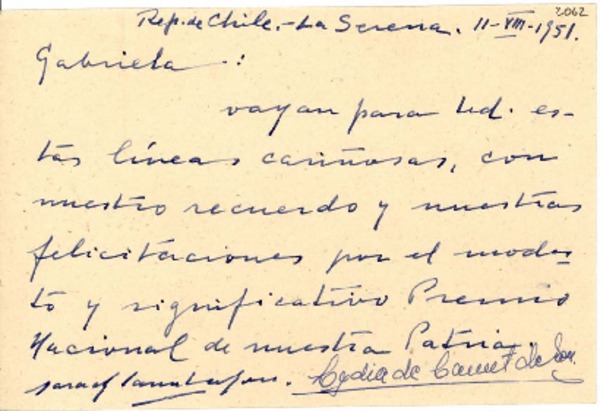 2062
Rep. de Chile.-La Serena. 11-VIII-1951.
Gabriela :
vayan para Ud. es-
tas líneas cariñosas, con
nuestro recuerdo y nuestras
felicitaciones por el modes-
to y significativo Premio
Nacional de nuestra Patria.
Lydia de